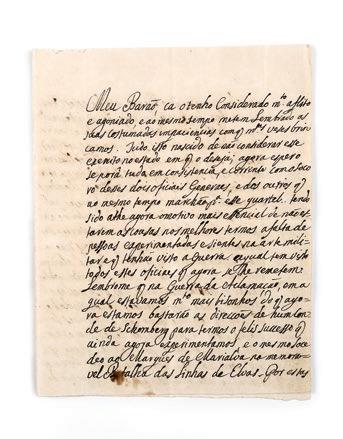 Meu Barão, ca o tenho Considerado m.to aflito
e agoniado, e ao mesmo tempo metem Lembrado as
suas Costumadas impaciencias com q m.tas vezes brin
camos. Tudo isto nascido de não considerar esse
exercito no estado em q o deseja; agora espero
se porá tudo em consistencia, e corrente com o soco
ro desses dois oficiais Generaes, e dos outros q
no mesmo tempo manchão p.a esse quartel. tendo
sido athe agora o motivo mais essencial de não es
tarem as Cousas nos melhores termos a falta de
pessoas experimentadas e sientes na arte mili
tar e q tenhão visto a Guerra a qual tem visto
todos estes oficiaes q agora se lhe remetem
Lembrome q na Guerra da Aclamação, em a
qual estavamos m.to mais bisonhos do q ago
ra estamos bastarão as direcões de hum Con
de de Schomberg para termos o felis sucesso q
ainda agora experimentamos, e o mesmo soce
deo ao Marques de Marialva na memora
vel Batalha das Linhas de Elvas. Por estes